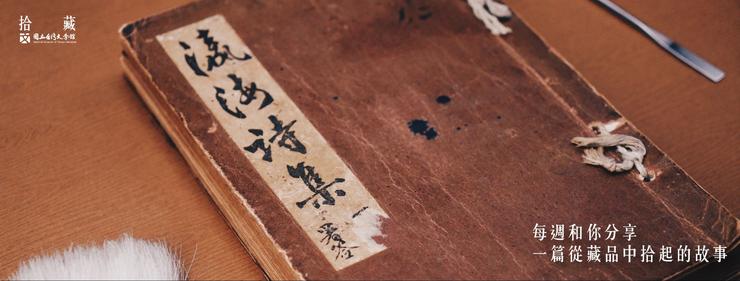 拾藏
國立台灣文學館
瀛海詩集
每週和你分享
一篇從藏品中拾起的故事